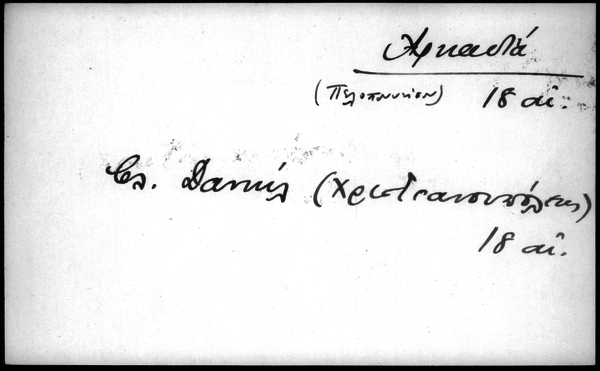 Ἀρκαδιά
(Πελοποννήσου) 18 αἰ.
βλ. Δανιήλ (Χριστιανουπόλεως)
18 αἰ.